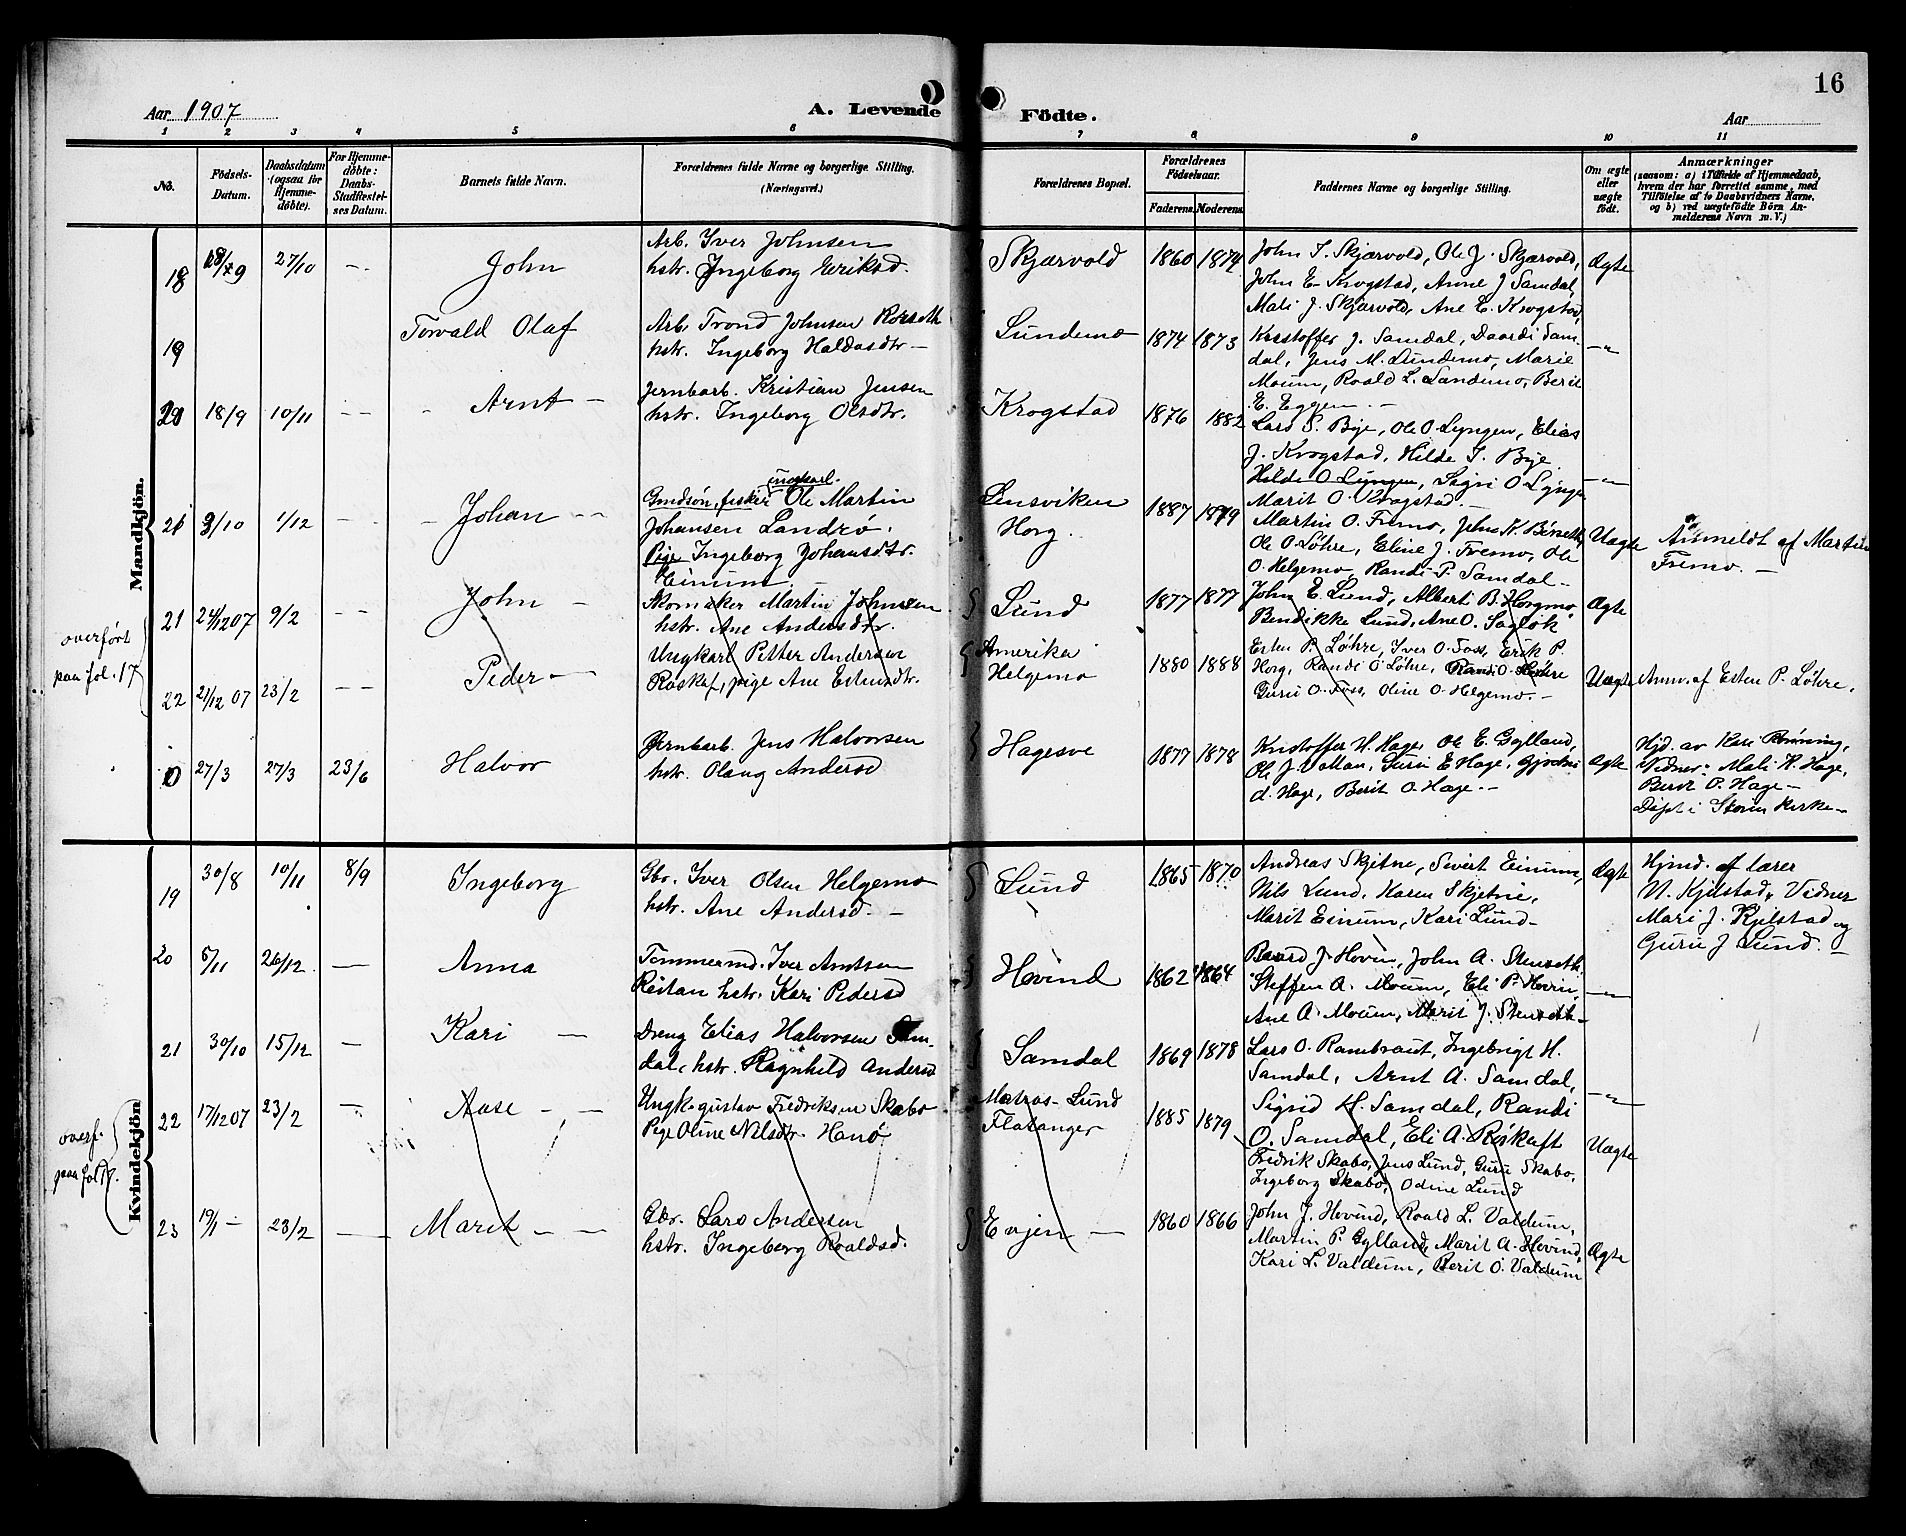 16
Aar 1907
A. Levende
Födte.
Aar
1 2 3 4 5 6 7 8 9 10 11
No.
Födsels-
Datum.
Daabsdatum
(ogsaa for
Hjemme-
döbte).
For Hjemme-
döbte:
Daabs-
Stadfæstel-
ses Datum.
Barnets fulde Navn.
Forældrenes fulde Navne og borgerlige Stilling.
(Næringsvei.)
Forældrenes Bopæl.
Forældrenes
Födselsaar.
Faderens.
Moderens.
Faddernes Navne og borgerlige Stilling.
Om ægte
eller
uægte
födt.
Anmærkninger
(saasom: a) i Tilfælde af Hjemmedaab,
hvem der har forrettet samme, med
Tilföielse af to Daabsvidners Navne,
og b) ved uægtefödte Börn An-
melderens Navn m. V.)
Mandkjön.
18 27/10 — John
Arb. Iver Johnsen
hstr. Ingeborg Eriksd.
Skjærvold 1860 1874
John I. Skjærvold, Ole J. Skjærvold,
John E. Krogstad, Anne J Samdal,
Mali J. Skjærvold, Ane E. Krogstad,
Ægte
19 Torvald Olaf
Arb. Trond Johnsen
hstr. Ingeborg Haldosdtr —
Sundemo 1874 1873
Kristoffer J. Samdal, Daardi Sam-
dal, Jens M. Sundemo, Marie
Moum, Roald L. Sandemo, Berit
E. Eggen. —
—"—
20 18/9 10/11 — — Arnt —
Jernbarb. Kristian Jensen
hstr. Ingeborg Olsdtr.
Krogstad 1876 1882
Lars S. Bye, Ole O Lyngen, Elias
J. Krogstad, Hilde I. Bye
Hilde O Lyngen, Sigri O Lyngen
Marit O. Krogstad. —
—"—
21 3/10 1/12 — Johan — —
ungkarl.
Gmdsön, fisker Ole Martin
Johansen Landrø.
Pige Ingeborg Johansdtr.
Einum.
Lensviken
Horg.
1887 1879
Martin O. Fremo, Jens K. Bönetth,
Ole O. Løhre, Eline J. Fremo, Ole
O. Helgemo, Randi P. Samdal —
Uægte
Anmeldt af Martin
Fremo. —
overført
paa fol. 17
21 24/12 07 9/2 — — John —
Skomaker Martin Johnsen
hstr. Ane Andersdtr.
Lund 1877 1877
John E. Lund, Albert B. Horgmo,
Bendikke Lund, Ane O. Sagløk
Ægte
22 21/12 07 23/2 — — Peder —
Ungkarl Petter Andersen
Roskaf, pige Ane Estensdtr.
Amerika
Helgemo
1880 1888
Esten P. Løhre, Iver O. Foss, Erik P.
Horg, Randi O Løhre,
Guru O. Foss, Oline O. Helgemo. —
Uægte
Anm. af Esten P. Løhre.
0 27/3 27/3 23/6 Halvor
Jernbarb. Jens Halvorsen
hstr. Olaug Andersd
Hagesve 1877 1878
Kristoffer H. Hage, Ole E. Gylland,
Ole J. Guru E Hage,
d. Hage, Berit O. Hage. —
Ægte
Hjd. av Kari
Vidner: Mali K. Hage,
Berit P. Hage —
Døpt i Støren Kirke —
Kvindekjön
19 30/8 10/11 8/9 Ingeborg
Gbr. Iver Olsen Helgemo
hstr. Ane Andersd. —
Lund 1865 1870
Andreas Skjetne, Sivert Einum,
Nils Lund, Karen Skjetne,
Marit Einum, Kari Lund —
Ægte
Hjmd. af lærer
N. Kjelstad, Vidner
Mari J. Kjelstad og
Guru J Lund. —
20 5/11 26/12 — Anna
Tømmermd. Iver Arntsen
Reitan hstr. Kari Pedersd
Hovind 1862 1864
Baard J. Hovin, John A. Stenseth
Steffen A. Moum, Eli P. Hovin,
Ane A. Moum, Marit J. Stenseth —
—"—
21 30/10 15/12 — Kari —
Dreng Elias Halvorsen Sam-
dal, hstr. Ragnhild Andersd
Samdal 1869 1878
Lars O. Rambraut, Ingebrigt H.
Samdal, Arnt A. Samdal,
Sigrid H. Samdal, Randi
O. Samdal, Eli A. Röskaft
—"—
overf.
paa fol 17.
22 17/12 07 23/2 — Aase — —
Ungk. Gustav Fredriksen Skabo
Pige Oline Nilsdtr. Hanø
Matros — Lund
Flatanger
1885 1879
Fredrik Skabo, Jens Lund, Guru Skabo,
Ingeborg Skabo, Odine Lund
Uægte
23 19/1 — 23/2 — Marit — —
Gbr. Lars Andersen
hstr. Ingeborg Roaldsd.
Evjen — 1860 1866
John J. Hovind, Roald L. Valdum,
Martin P. Gylland, Marit A. Hovind,
Kari L. Valdum, Berit O. Valdum
Ægte